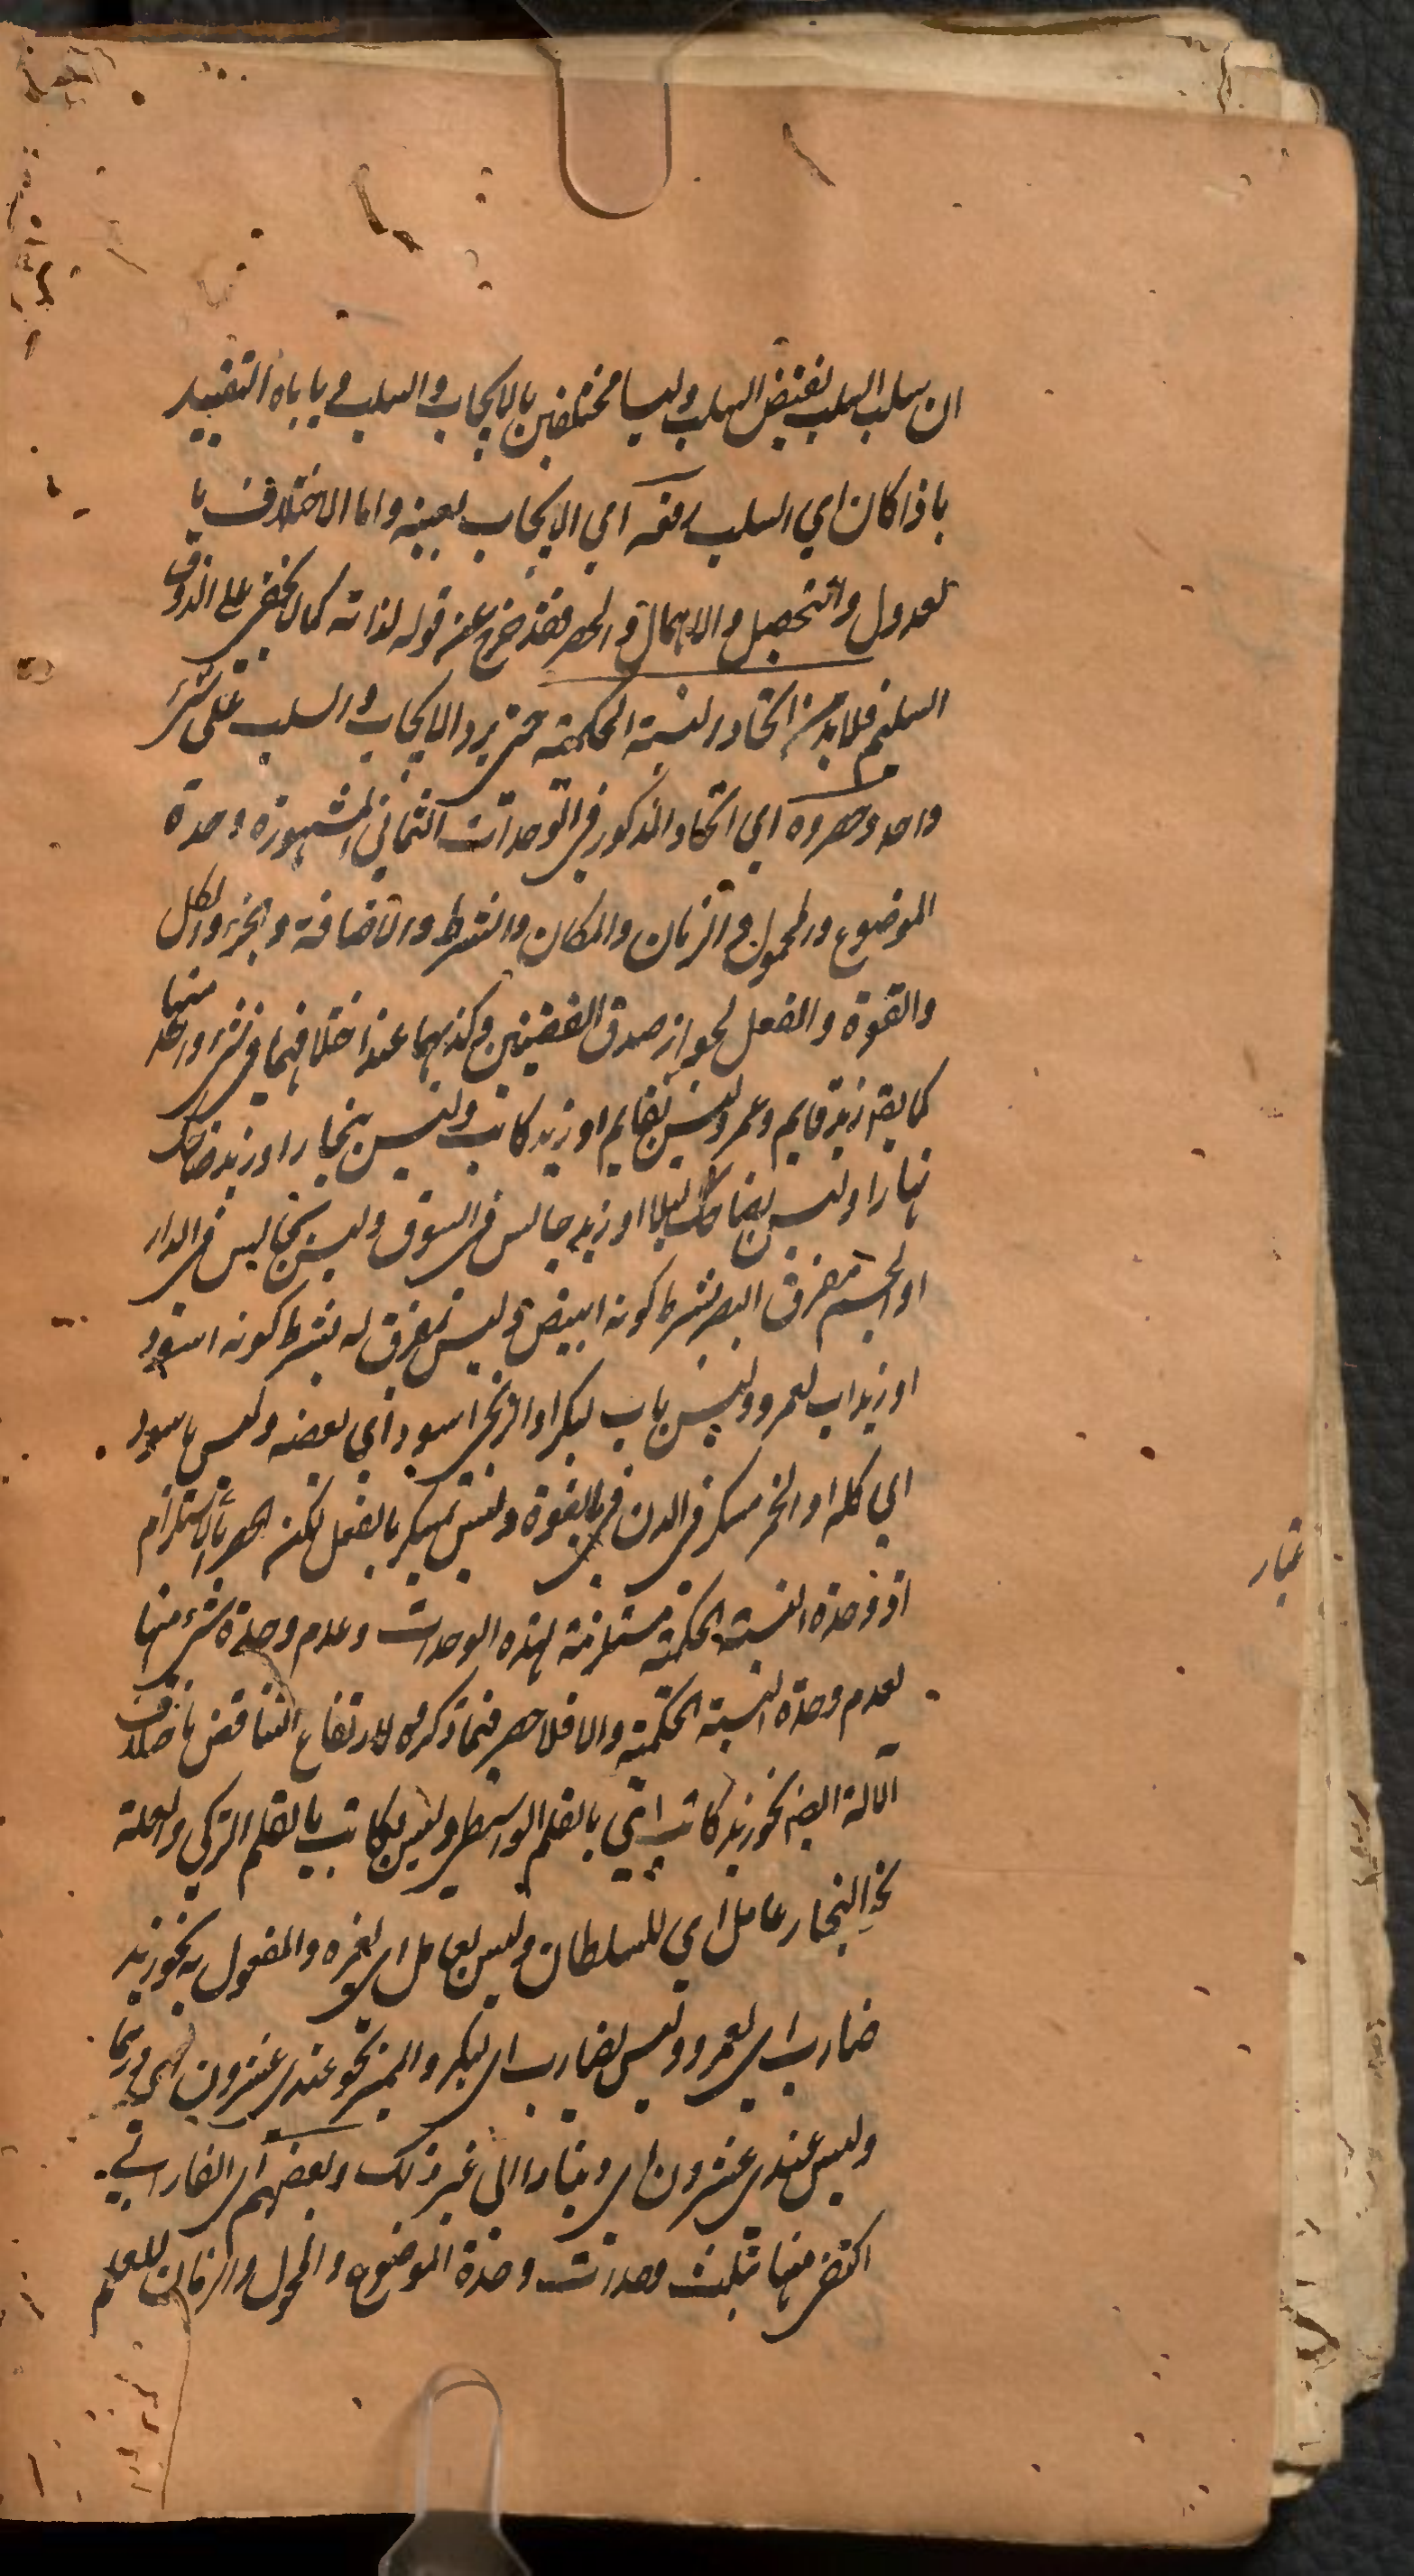 ان سلب السلب نقيض السلب وليسا مختلفين بالايجاب والسلب و يا باه التقييد
باذا كان اي السلب رفعه اي الايجاب بعينه واما الاختلاف با
لعدول والتحصيل والاهمال والحصر فقد خرج عنه قوله لذاته كما لا يخفى على الذوق
السليم فلابد من اتحاد النسبة الحكمية حتى يرد الايجاب والسلب على شئ
واحد وحصروه اي اتحاد المذكور في الوحدات الثماني المشهورة وحدة
الموضوع والمحمول والزمان والمكان والشرط والاضافة والجزء والكل
والقوة والفعل لجواز صدق القضيتين وكذبهما عند اختلافهما في شئ واحد منها
كما يقه زيد قايم وعمرو ليس بقايم او زيد كاتب وليس بنجار او زيد ضاحك
نهارا وليس بضاحك ليلا او زيد جالس في السوق وليس بجالس في الدار
او الجسم مفرق البصر بشرط كونه ابيض وليس بمفرق له بشرط كونه اسود
او زيد اب لعمرو وليس باب لبكر او الزنجي اسود اي بعضه وليس باسود
اي كله او الخمر مسكر في الدن في بالقوة وليس بمسكر بالفعل لكنه الحصر بالاستلزام
اذ وحدة النسبة الحكمية مستلزمة لهذه الوحدات وعدم وحدة شئ منها
لعدم وحدة النسبة الحكمية والا فلا حصر فيما ذكروه لارتفاع التناقض باختلاف
الآلة ايضا نحو زيد كاتب اي بالقلم الواسطي وليس بكاتب بالقلم التركي والعلة
نحو النجار عامل اي للسلطان وليس بعامل اي لغيره والمفعول به نحو زيد
ضارب اي لعمرو وليس بضارب اي لبكر والمميز نحو عندي عشرون اي درهما
وليس عندي عشرون اي دينارا الى غير ذلك وبعضهم اي الفارابي
اكتفى منها بثلث وحدات وحدة الموضوع والمحمول والزمان للعلم